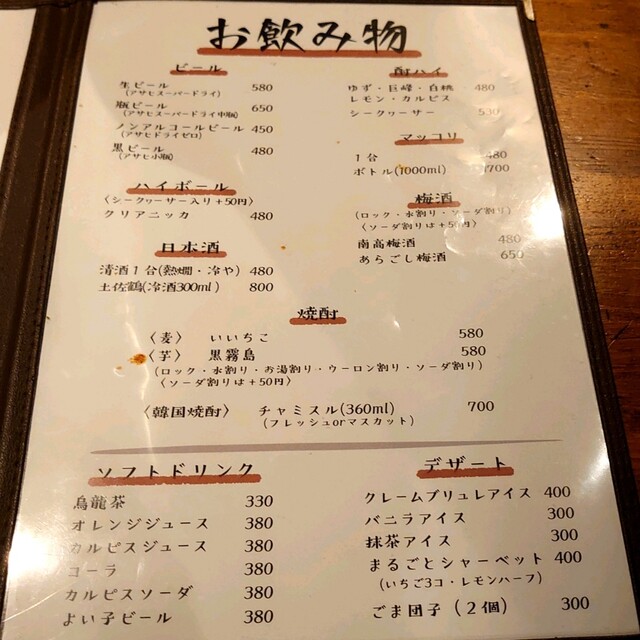 お飲み物
ビール
生ビール 580
(アサヒスーパードライ)
瓶ビール 650
(アサヒスーパードライ中瓶)
ノンアルコールビール 450
(アサヒドライゼロ)
黒ビール 480
(アサヒ小瓶)
ハイボール
〈シークヮーサー入り+50円〉
クリアニッカ 480
日本酒
清酒1合(熱燗・冷や) 480
土佐鶴(冷酒300ml) 800
酎ハイ
ゆず・巨峰・白桃 480
レモン・カルピス
シークヮーサー 530
マッコリ
1合 480
ボトル(1000ml) 1700
梅酒
(ロック・水割り・ソーダ割り)
〈ソーダ割りは+50円〉
南高梅酒 480
あらごし梅酒 650
焼酎
〈麦〉 いいちこ 580
〈芋〉 黒霧島 580
(ロック・水割り・お湯割り・ウーロン割り・ソーダ割り)
〈ソーダ割りは+50円〉
〈韓国焼酎〉 チャミスル(360ml) 700
(フレッシュorマスカット)
ソフトドリンク
烏龍茶 330
オレンジジュース 380
カルピスジュース 380
コーラ 380
カルピスソーダ 380
よい子ビール 380
デザート
クレームブリュレアイス 400
バニラアイス 300
抹茶アイス 300
まるごとシャーベット 400
(いちご3コ・レモンハーフ)
ごま団子(2個) 300